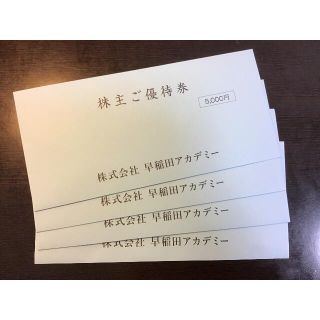 株主ご優待券
5,000円
株式会社 早稲田アカデミー
株式会社 早稲田アカデミー
株式会社 早稲田アカデミー
株式会社 早稲田アカデミー